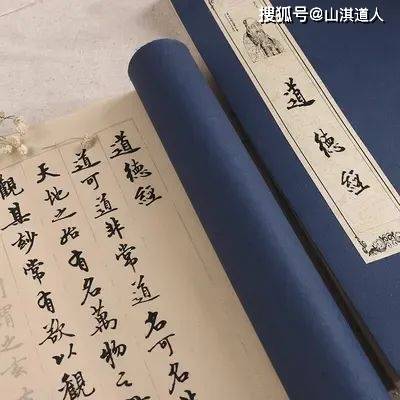 搜狐号@山淇道人
道德經
道德經
道可道非常道名可名非
天地之始有名萬物之
觀其妙常有欲以觀
謂之玄